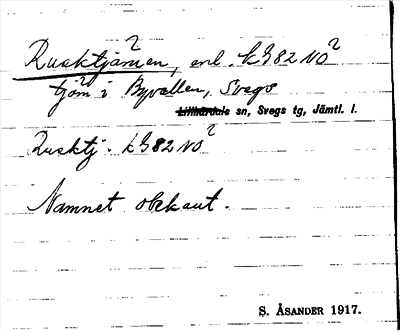 Rusktjärnen, enl. kB82NO?
tjärn i Byvallen, Svegs
Lillhärdals sn, Svegs tg, Jämtl. l.
Rusktj. kB82NO?
Namnet okänt.
S. ÅSANDER 1917.